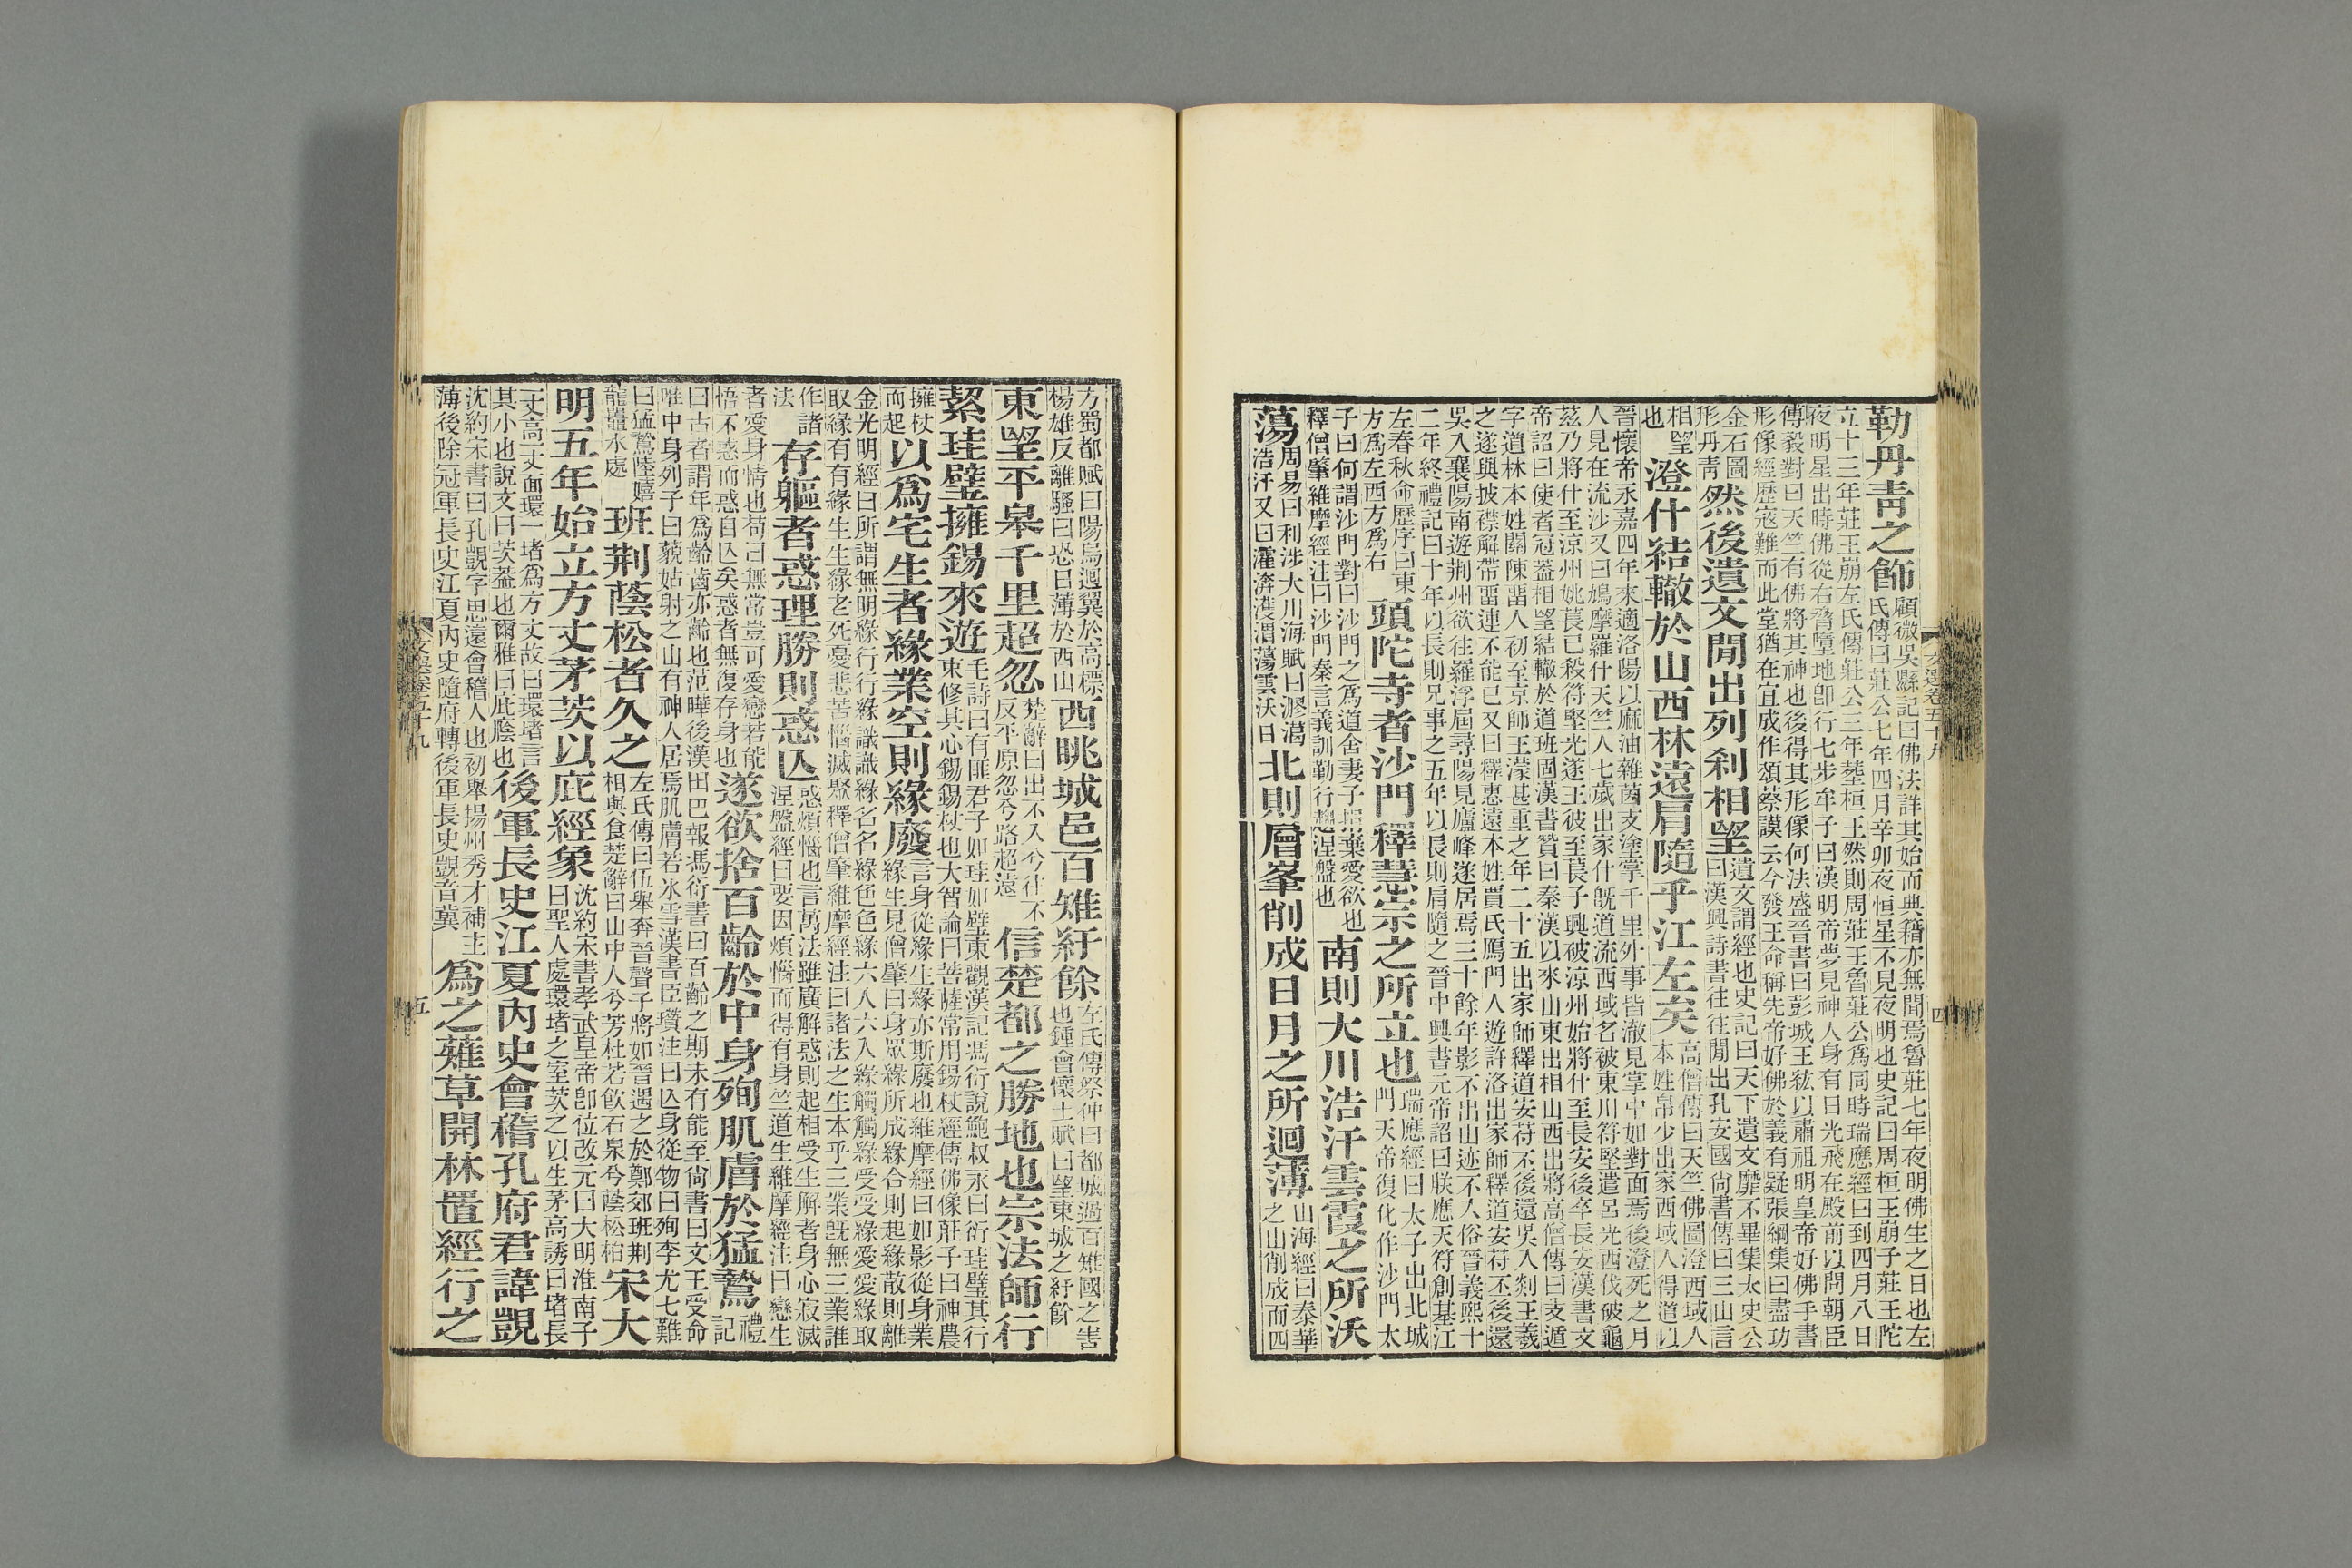 勒丹青之飾
顧微吳縣記曰佛法詳其始而典籍亦無聞焉魯莊七年夜明佛生之日也左
氏傳曰莊公七年四月辛卯夜恒星不見夜明也史記曰周桓王崩子莊王陀
立十三年莊王崩左氏傳莊公三年葬桓王然則周莊王魯莊公爲同時瑞應經曰到四月八日
夜明星出時佛從右脅墮地卽行七步牟子曰漢明帝夢見神人身有日光飛在殿前以問朝臣
傅毅對曰天竺有佛將其神也後得其形像何法盛晉書曰彭城王紘以肅祖明皇帝好佛手書
形像經歷寇難而此堂猶在宜成作頌蔡謨云今發王命稱先帝好佛於義有疑張綱集曰盡功
金石圖
形丹青
然後遺文閒出列刹相望
遺文謂經也史記曰天下遺文靡不畢集太史公
曰漢興詩書往往閒出孔安國尚書傳曰三山言
相望
也
澄什結轍於山西林遠肩隨乎江左矣
高僧傳曰天竺佛圖澄西域人
本姓帛少出家西域人得道以
晉懷帝永嘉四年來適洛陽以麻油雜茵支塗掌千里外事皆澈見掌中如對面焉後澄死之月
人見在流沙又曰鳩摩羅什天竺人七歲出家什旣道流西域名被東川符堅遣呂光西伐破龜
茲乃將什至涼州姚萇已殺符堅光遂王彼至萇子興破涼州始將什至長安後卒長安漢書文
帝詔曰使者冠蓋相望結轍於道班固漢書贊曰秦漢以來山東出相山西出將高僧傳曰支遁
字道林本姓關陳畱人初至京師王濛甚重之年二十五出家師釋道安苻丕後還吳入剡王羲
之遂與披襟解帶畱連不能已又曰釋惠遠本姓賈氏鴈門人遊許洛出家師釋道安苻丕後還
吳入襄陽南遊荆州欲往羅浮屆尋陽見廬峰遂居焉三十餘年影不出山迹不入俗晉義熙十
二年終禮記曰十年以長則兄事之五年以長則肩隨之晉中興書元帝詔曰朕應天符創基江
左春秋命歷序曰東
方爲左西方爲右
頭陀寺者沙門釋慧宗之所立也
瑞應經曰太子出北城
門天帝復化作沙門太
子曰何謂沙門對曰沙門之爲道舍妻子捐棄愛欲也
釋僧肇維摩經注曰沙門秦言義訓勤行趨涅盤也
南則大川浩汗雲霞之所沃
蕩
周易曰利涉大川海賦曰
浩汗又曰濩渭蕩雲沃日
北則層峯削成日月之所迴薄
山海經曰泰華
之山削成而四
文選卷五十九
四
方蜀都賦曰陽烏迴翼於高標
楊雄反離騷曰恐日薄於西山
西眺城邑百雉紆餘
左氏傳祭仲曰都城過百雉國之害
也鍾會懷土賦曰望東城之紆餘
東望平皋千里超忽
楚辭曰出不入兮往不
反平原忽兮路超遠
信楚都之勝地也宗法師行
絜珪璧擁錫來遊
毛詩曰有匪君子如珪如璧東觀漢記馮衍說鮑叔永曰衍珪璧其行
束修其心錫錫杖也大智論曰菩薩常用錫杖經傳佛像莊子曰神農
擁杖
而起
以爲宅生者緣業空則緣廢
言身從緣生緣亦斯廢也維摩經曰如影從身業
緣生見僧肇曰身眾緣所成緣合則起緣散則離
金光明經曰所謂無明緣行行緣識識緣名名緣色色緣六入六入緣觸觸緣受受緣愛愛緣取
取緣有有緣生生緣老死憂悲苦惱滅聚釋僧肇維摩經注曰諸法之生本乎三業旣無三業誰
作諸
法
存軀者惑理勝則惑亾
惑煩惱也言萬法雖廣解惑則起相受生解者身心寂滅
涅盤經曰要因煩惱而得有身竺道生維摩經注曰戀生
者愛身情也苟曰無常豈可愛戀若能
悟不惑而惑自亾矣惑者無復存身也
遂欲捨百齡於中身殉肌膚於猛鷙
禮
記
曰古者謂年爲齡齒亦齡也范曄後漢田巴報馮衍書曰百齡之期未有能至尙書曰文王受命
唯中身列子曰藐姑射之山有神人居焉肌膚若氷雪漢書臣瓚注曰亾身從物曰殉李尤七難
曰猛鷙陸嬉
龍鼉水處
班荆蔭松者久之
左氏傳曰伍舉奔晉聲子將如晉遇之於鄭郊班荆
相與食楚辭曰山中人兮芳杜若飮石泉兮蔭松柏
宋大
明五年始立方丈茅茨以庇經象
沈約宋書孝武皇帝卽位改元曰大明淮南子
曰聖人處環堵之室茨之以生茅高誘曰堵長
一丈高一丈面環一堵爲方丈故曰環堵言
其小也說文曰茨蓋也爾雅曰庇廕也
後軍長史江夏內史會稽孔府君諱覬
沈約宋書曰孔覬字思遠會稽人也初舉揚州秀才補主
薄後除冠軍長史江夏內史隨府轉後軍長史覬音冀
爲之薙草開林置經行之
文選卷五十九
五